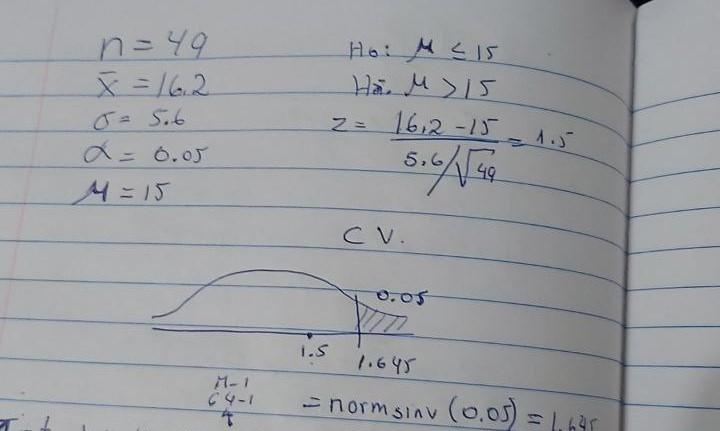 n = 49
x̄ = 16.2
σ = 5.6
α = 0.05
μ = 15
H₀: μ ≤ 15
Hₐ: μ > 15
z = 16.2 - 15 / 5.6/√49 = 1.5
C V.
0.05
1.5
1.645
64-1
= normsinv (0.05) = 1.645